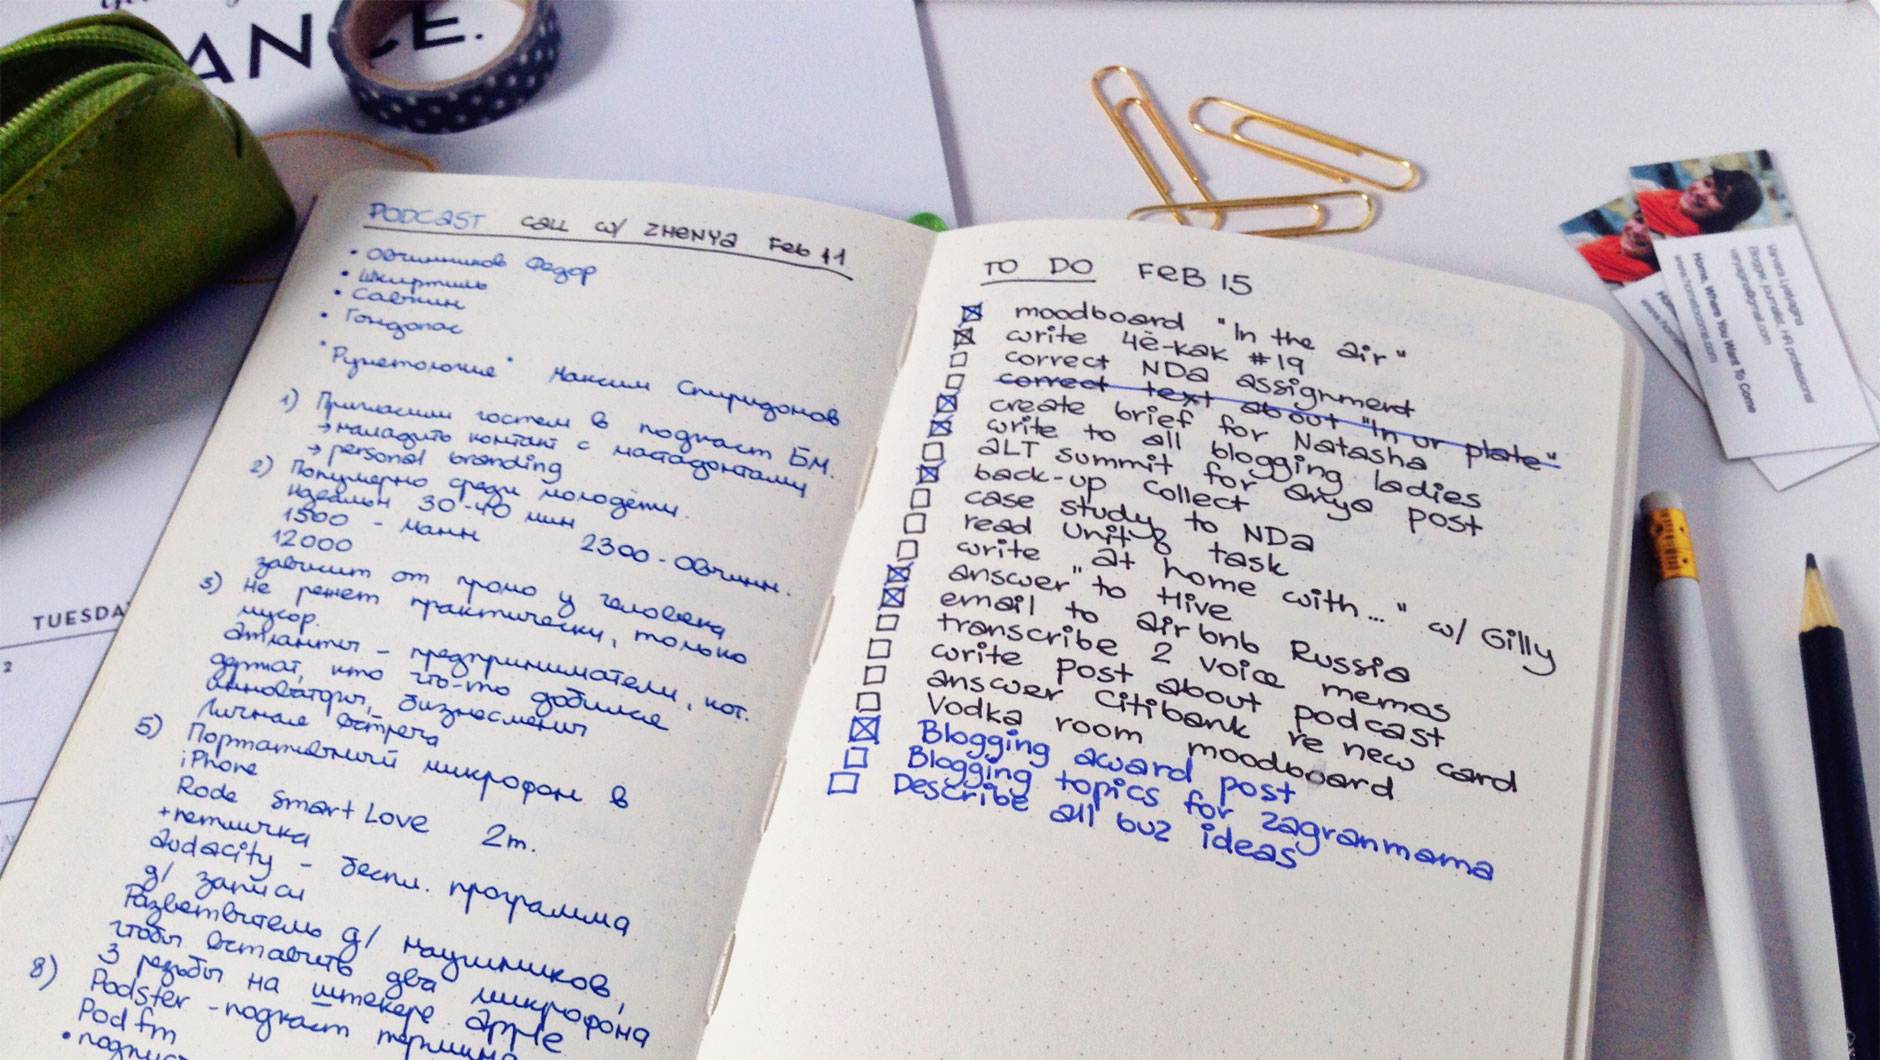 ANCE.
TUESDA
2
PODCAST CALL W/ ZHENYA Feb 11
• Овчинников Федор
• Шкиртиль
• Савкин
• Гондопас
"Рунетология" Максим Спиридонов
1) Пригласили гостем в подкаст БМ.
→ наладить контакт с мастадонтами
→ personal branding
2) Популярно среди молодёжи.
идеальн 30-40 мин
1500 - манн 2300 - Овчинн.
12000
зависит от промо у человека
3) Не режет практически, только
мусор.
атланты - предприниматели, кот.
держат, кто что-то добился
инноваторы, бизнесмены
Личная встреча
5) Портативный микрофон в
iPhone
Rode Smart Love 2m.
+петличка
audacity - беспл. программа
д/ записи
Разветвитель д/ наушников,
чтобы вставить два микрофона
3 резьбы на штекере apple
8) Podster - подкаст
Pod fm
TO DO FEB 15
moodboard "In the air"
write 4ё-как #19
correct NDa assignment
correct text about "In ur plate"
create brief for Natasha
write to all blogging ladies
aLT summit for anya post
back-up collect
case study to NDa
read Unit 8 task
write "at home with..." w/ Gilly
answer to Hive
email to airbnb Russia
transcribe 2 voice memos
write post about podcast
answer Citibank re new card
Vodka room moodboard
Blogging award post
Blogging topics for zagranmama
Describe all buz ideas
Varvara Lyalyagina
Blogger, journalist, HR professional
varyagina@gmail.com
Home. Where You Want To Come
www.homestocome.com